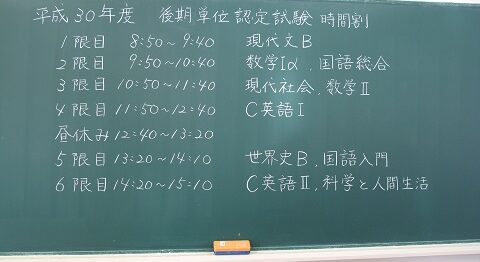 平成30年度 後期単位認定試験 時間割
1限目 8:50~9:40 現代文B
2限目 9:50~10:40 数学Iα, 国語総合
3限目 10:50~11:40 現代社会, 数学Ⅱ
4限目 11:50~12:40 C英語Ⅰ
昼休み 12:40~13:20
5限目 13:20~14:10 世界史B, 国語入門
6限目 14:20~15:10 C英語Ⅱ, 科学と人間生活